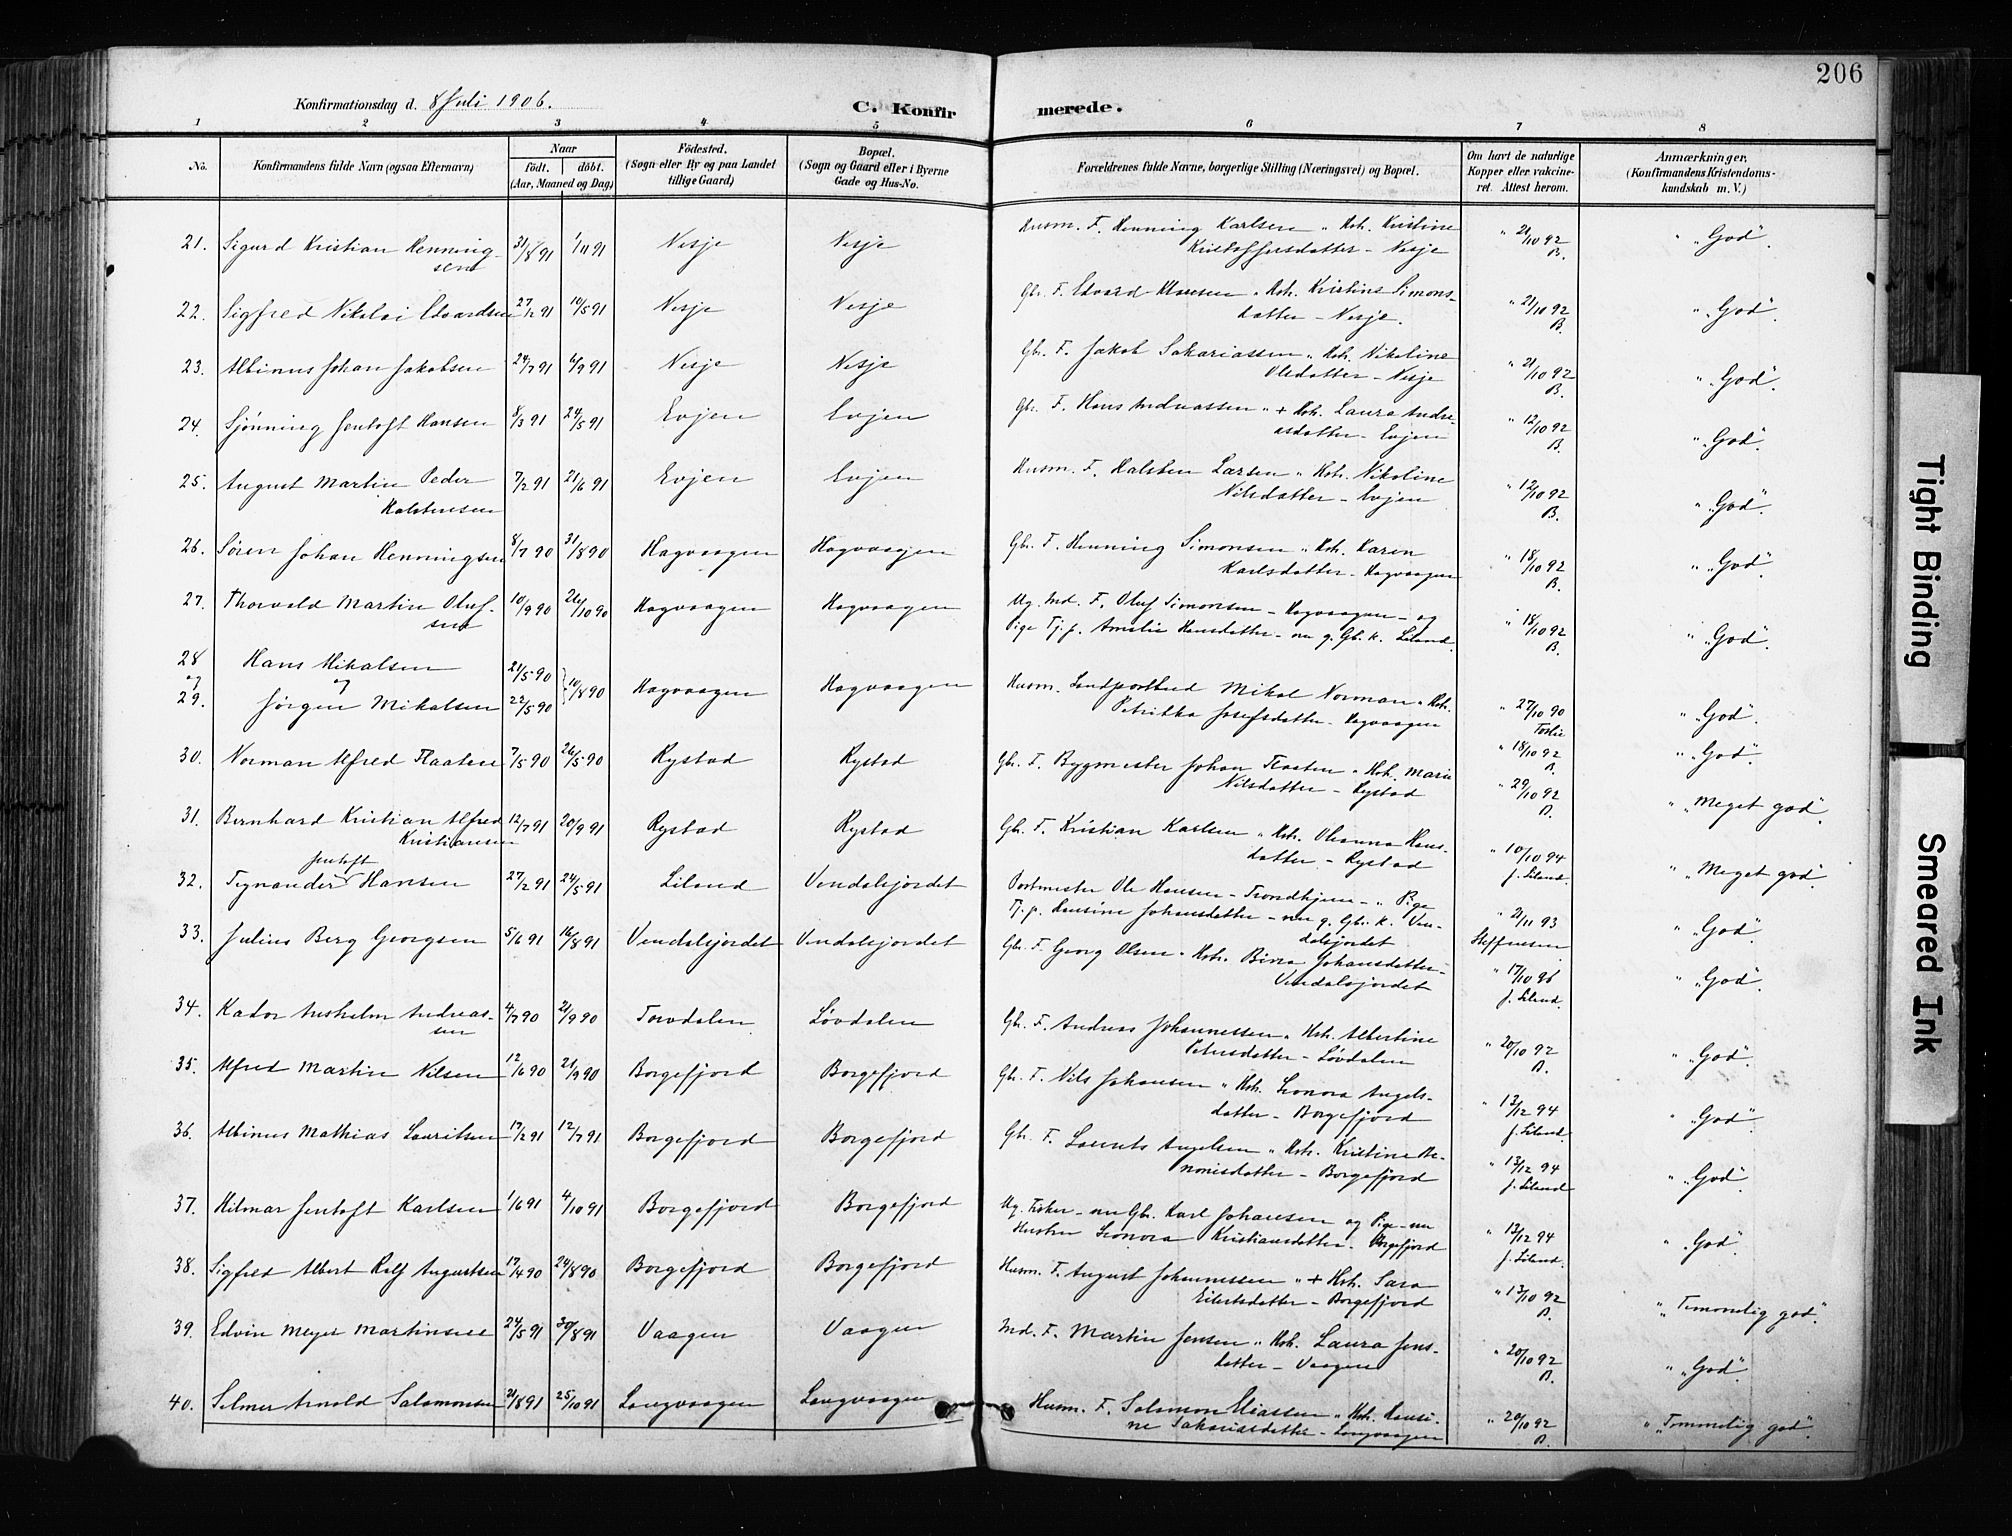 206
Konfirmationsdag d. 8 Juli 1906.
C. Konfirmerede.
1 2 3 4 5 6 7 8
No. Konfirmandens fulde Navn (ogsaa Efternavn)
Naar
født. døbt.
(Aar, Maaned og Dag)
Fødested.
(Sogn eller By og paa Landet
tillige Gaard)
Bopæl.
(Sogn og Gaard eller i Byerne
Gade og Hus-No.
Forældrenes fulde Navne, borgerlige Stilling (Næringsvei) og Bopæl.
Om havt de naturlige
Kopper eller vakcineret. Attest herom.
Anmærkninger.
(Konfirmandens Kristendomskundskab m. V.)
21. Sigurd Kristian Henningsen 31/8 91 1/11 91 Nesje Nesje Husm. F. Henning Karlsen " Hst. Kristine
Kristoffersdatter - Nesje " 21/10 92 B. " "God".
22. Sigfred Nikolai Edvardsen 27/2 91 10/5 91 Nesje Nesje Gbr. F. Edvard Klausen " Hst. Kristine Simonsdatter - Nesje. " 21/10 92 B. " "God".
23. Albinus Johan Jakobsen 24/7 91 6/9 91 Nesje Nesje Gbr. F. Jakob Sakariassen " Hst. Nikoline
Olsdatter - Nesje " 21/10 92 B. " "God".
24. Sjønning Jentoft Hansen 8/3 91 24/5 91 Evjen Evjen Gbr. F. Hans Andreassen " + Hst. Laura Andreasdatter - Evjen " 12/10 92 B. " "God".
25. August Martin Peder
Halstensen 7/2 91 21/6 91 Evjen Evjen Husm. F. Halsten Larsen " Hst. Nikoline
Nilsdatter - Evjen " 12/10 92 B. " "God".
26. Søren Johan Henningsen 8/7 90 31/8 90 Hagvaagen Hagvaagen Gbr. F. Henning Simonsen " Hst. Karen
Karlsdatter - Hagvaagen " 18/10 92 B. " "God".
27. Thorvald Martin Olufsen 10/9 90 26/10 90 Hagvaagen Hagvaagen Ug. Ind. F. Oluf Simonsen - Hagvaagen - og
Pige Tj. p. Amelie Hansdatter - nu g. Gb. k. Liland. " 18/10 92 B. " "God".
28 Hans Mikalsen 21/5 90
og og 10/8 90 Hagvaagen Hagvaagen
29. Jørgen Mikalsen 22/5 90 Husm. Landpostbud Mikal Norman " Hst.
Petrikka Josefsdatter - Hagvaagen " 27/10 90 " "God".
30. Norman Alfred Flaaten 7/5 90 26/5 90 Rystad Rystad Gbr. F. Bygmester Johan Flaaten " Hst. Marie
Nilsdatter - Rystad " 18/10 92 B. " "God".
" 29/10 92 B. " "Meget god".
31. Bernhard Kristian Alfred
Kristiansen 12/7 91 20/9 91 Rystad Rystad Gbr. F. Kristian Karlsen " Hst. Oleanna Hansdatter - Rystad " 10/10 94 J. Liland. " "Meget god".
32. Tynander Jentoft Hansen 27/2 91 24/5 91 Liland Vendalsjordet Postmester Ole Hansen - Trondhjem - " Pige
Tj. p. Hansine Johansdatter - nu g. Gbr. k. Vendalsjordet " 21/11 93 Steffensen " "God".
33. Julius Berg Georgsen 5/6 91 16/8 91 Vendalsjordet Vendalsjordet Gbr. F. Georg Olsen " Hst. Berra Johansdatter -
Vendalsjordet " 17/10 96 J. Liland. " "God".
34. Kador Anshelm Andreassen 4/7 90 21/9 90 Torvdalen Løvdalen Gbr. F. Andreas Johannessen " Hst. Albertine
Petersdatter - Løvdalen " 20/10 92 B. " "God".
35. Alfred Martin Nilsen 12/6 90 21/9 90 Borgefjord Borgefjord Gbr. F. Nils Johansen " Hst. Leonora Angelsdatter - Borgefjord " 13/12 94 J. Liland " "God".
36. Albinus Mathias Lauritsen 17/2 91 12/7 91 Borgefjord Borgefjord Gbr. F. Laurits Angelsen " Hst. Kristine Benonisdatter - Borgefjord " 13/12 94 J. Liland " "God".
37. Hilmar Jentoft Karlsen 1/6 91 4/10 91 Borgefjord Borgefjord Ug. Fisker - nu Gbr. Karl Johansen og Pige - nu
Hustru Leonora Kristiansdatter - Borgefjord " 13/12 94 J. Liland. " "God".
38. Sigfred Albert Rolf Augustsen 17/4 90 24/8 90 Borgefjord Borgefjord Husm. F. August Johannessen " + Hst. Sara
Eilertsdatter - Borgefjord " 13/10 92 B. " "Temmelig god".
39. Edvin Meyer Martinsen 24/5 91 30/8 91 Vaagen Vaagen Ind. F. Martin Jensen " Hst. Laura Jensdatter - Vaagen " 20/10 92 B. " "God".
40. Selmer Arnold Salamonsen 21/8 91 25/10 91 Langvaagen Langvaagen Husm. F. Salamon Eliassen " Hst. Hansine Sakariasdatter - Langvaagen " 20/10 92 B. " "Temmelig god".
Tight Binding
Smeared Ink